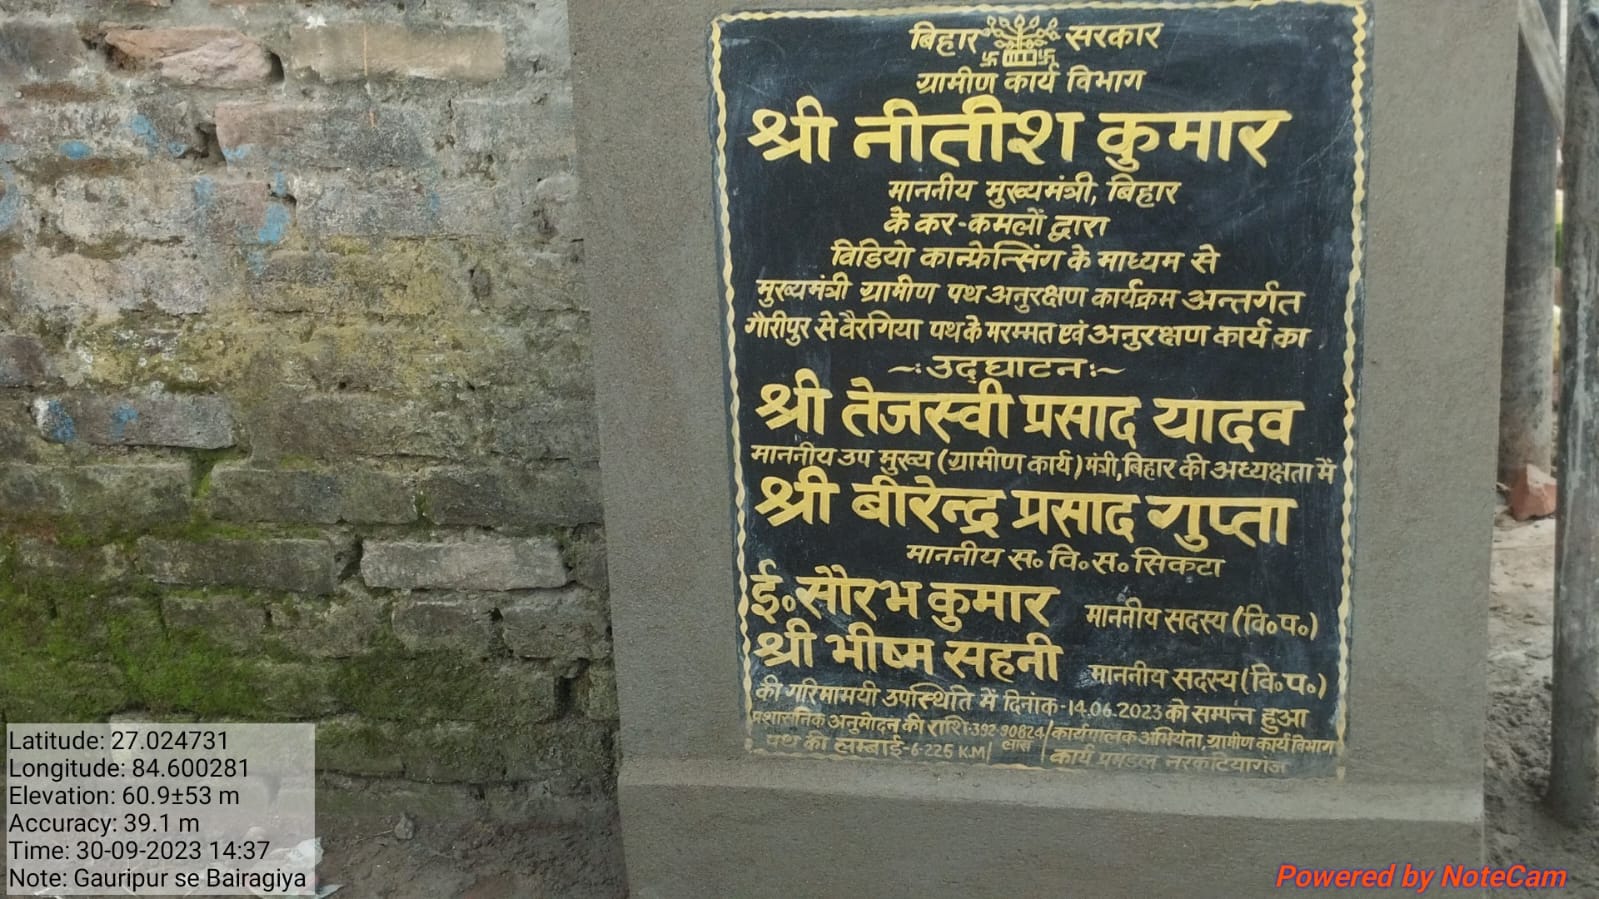 बिहार सरकार
ग्रामीण कार्य विभाग
श्री नीतीश कुमार
माननीय मुख्यमंत्री, बिहार
के कर-कमलों द्वारा
विडियो कान्फ्रेन्सिंग के माध्यम से
मुख्यमंत्री ग्रामीण पथ अनुरक्षण कार्यक्रम अन्तर्गत
गौरीपुर से वैरगिया पथ के मरम्मत एवं अनुरक्षण कार्य का
~: उद्घाटन :~
श्री तेजस्वी प्रसाद यादव
माननीय उप मुख्य (ग्रामीण कार्य) मंत्री, बिहार की अध्यक्षता में
श्री बीरेन्द्र प्रसाद गुप्ता
माननीय स० वि० स० सिकटा
ई० सौरभ कुमार माननीय सदस्य (वि० प०)
श्री भीष्म सहनी माननीय सदस्य (वि० प०)
की गरिमामयी उपस्थिति में दिनांक-14.06.2023 को सम्पन्न हुआ
प्रशासनिक अनुमोदन की राशि-392.90824 लाख / कार्यपालक अभियंता, ग्रामीण कार्य विभाग
पथ की लम्बाई-6.225 K.M / कार्य प्रमंडल नरकटियागंज
Latitude: 27.024731
Longitude: 84.600281
Elevation: 60.9±53 m
Accuracy: 39.1 m
Time: 30-09-2023 14:37
Note: Gauripur se Bairagiya
Powered by NoteCam